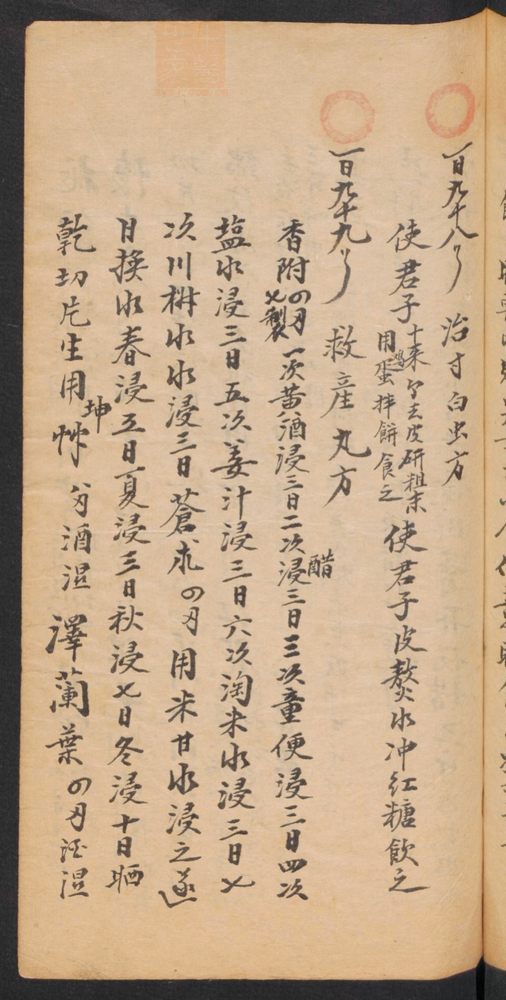 一百九十八 治寸白虫方
使君子 十來个去皮研粗末 用鸡蛋拌餅食之 使君子皮熬水冲紅糖飲之
一百九十九 救産丸方
香附 四両 七製 一次黄酒浸三日二次醋浸三日三次童便浸三日四次
塩水浸三日五次姜汁浸三日六次淘米水浸三日七
次川椒水水浸三日 蒼朮 四両用米甘水浸之逐
日換水春浸五日夏浸三日秋浸七日冬浸十日晒
乾切片生用 坤 酒湿 澤蘭葉 四両 湿